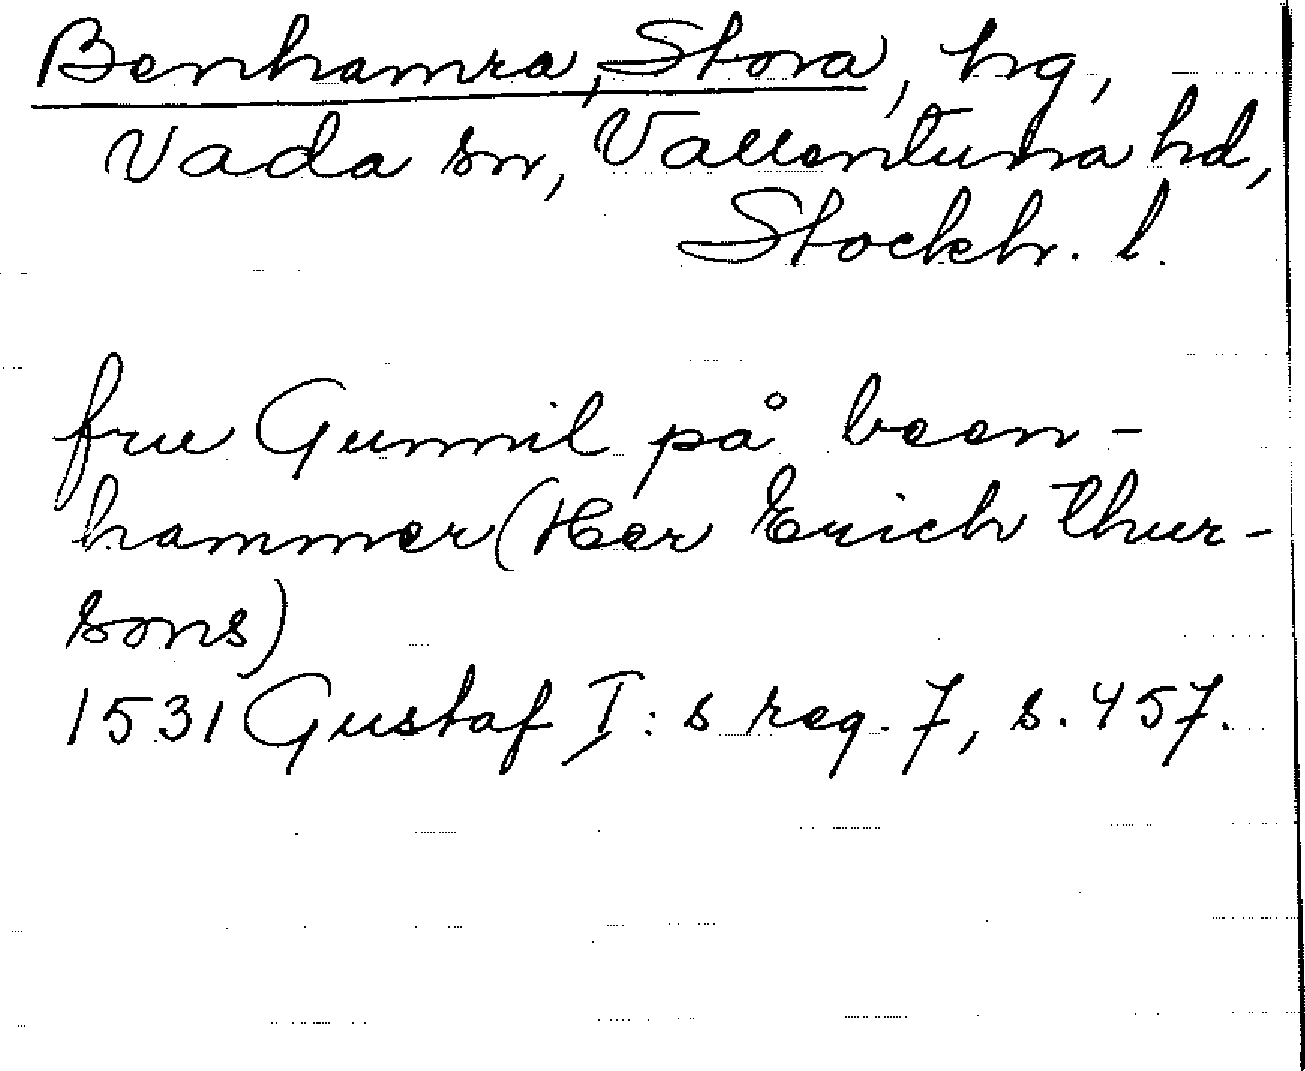 Benhamra, Stora, hg,
Vada sn, Vallentuna hd,
Stockh. l.
fru Gunnil på been-
hammer (Her Erich thur-
sons)
1531 Gustaf I:s reg. 7, s. 457.